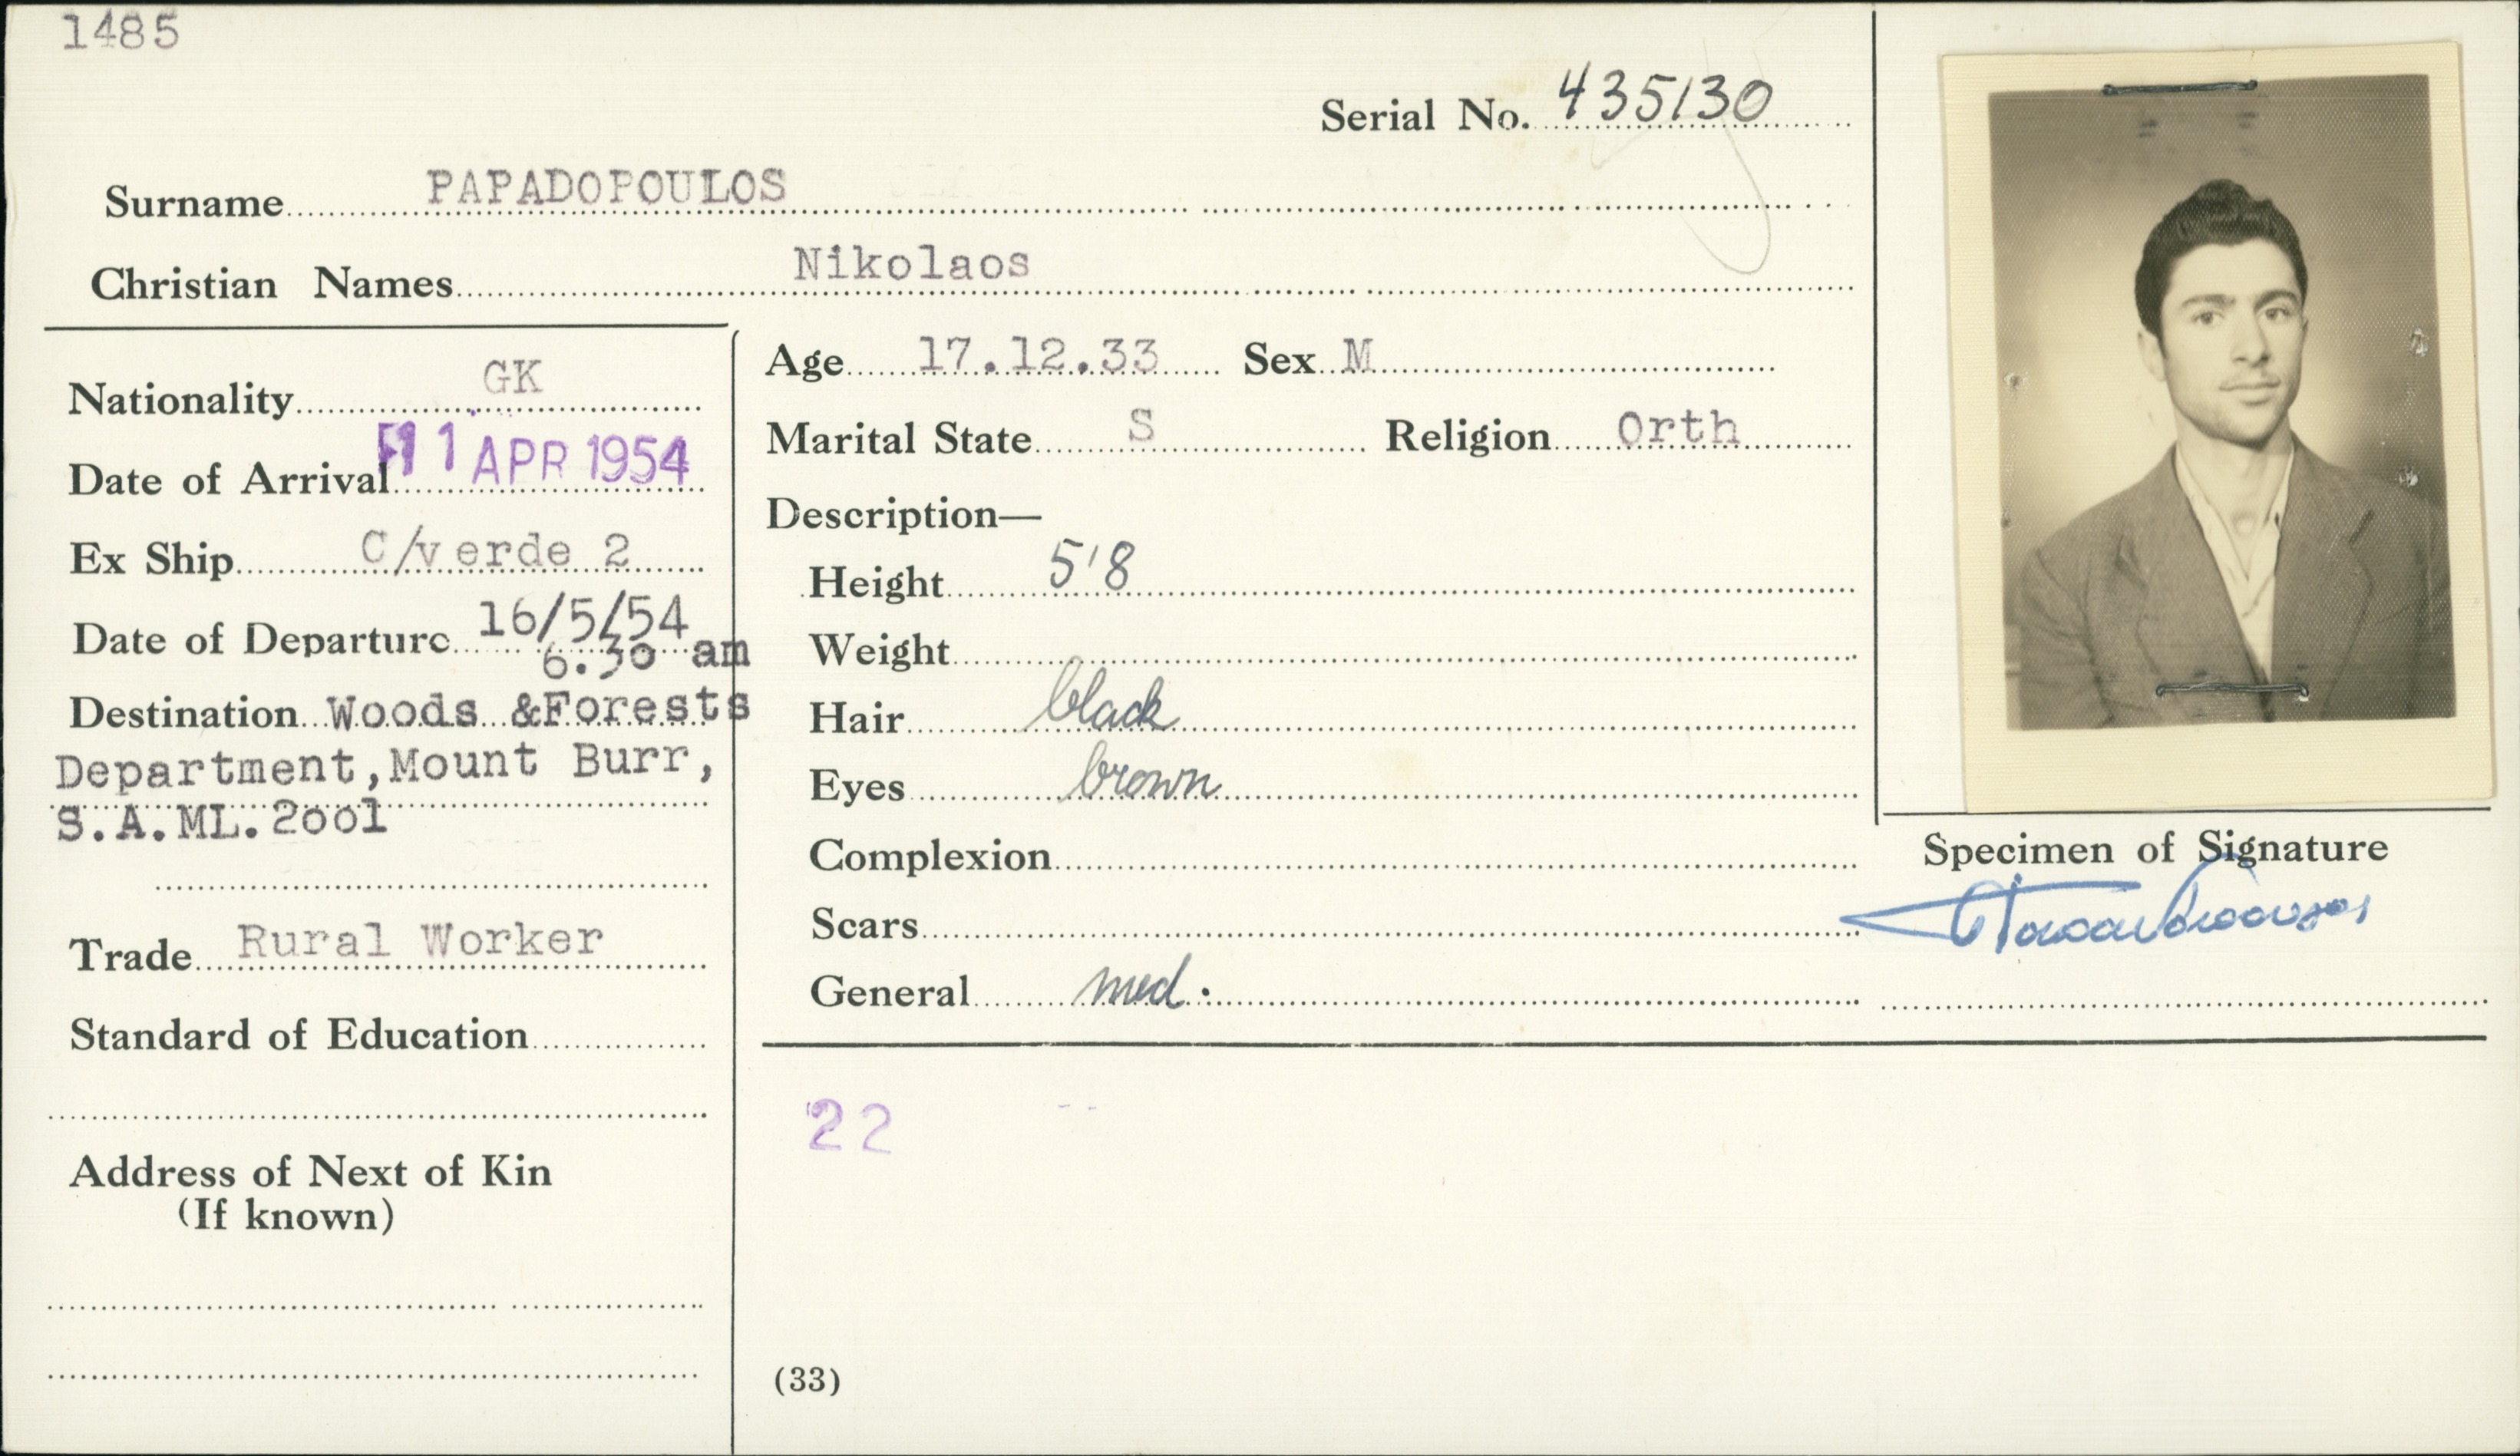 1485
Serial No. 435130
Surname PAPADOPOULOS
Christian Names Nikolaos
Nationality GK
Date of Arrival 11 APR 1954
Ex Ship C/verde 2
Date of Departure 16/5/54
6.30 am
Destination Woods &Forests
Department,Mount Burr,
S.A.ML.2001
Trade Rural Worker
Standard of Education
Address of Next of Kin
(If known)
Age 17.12.33 Sex M
Marital State S Religion Orth
Description—
Height 5'8
Weight
Hair black
Eyes brown
Complexion
Scars
General med.
22
(33)
Specimen of Signature